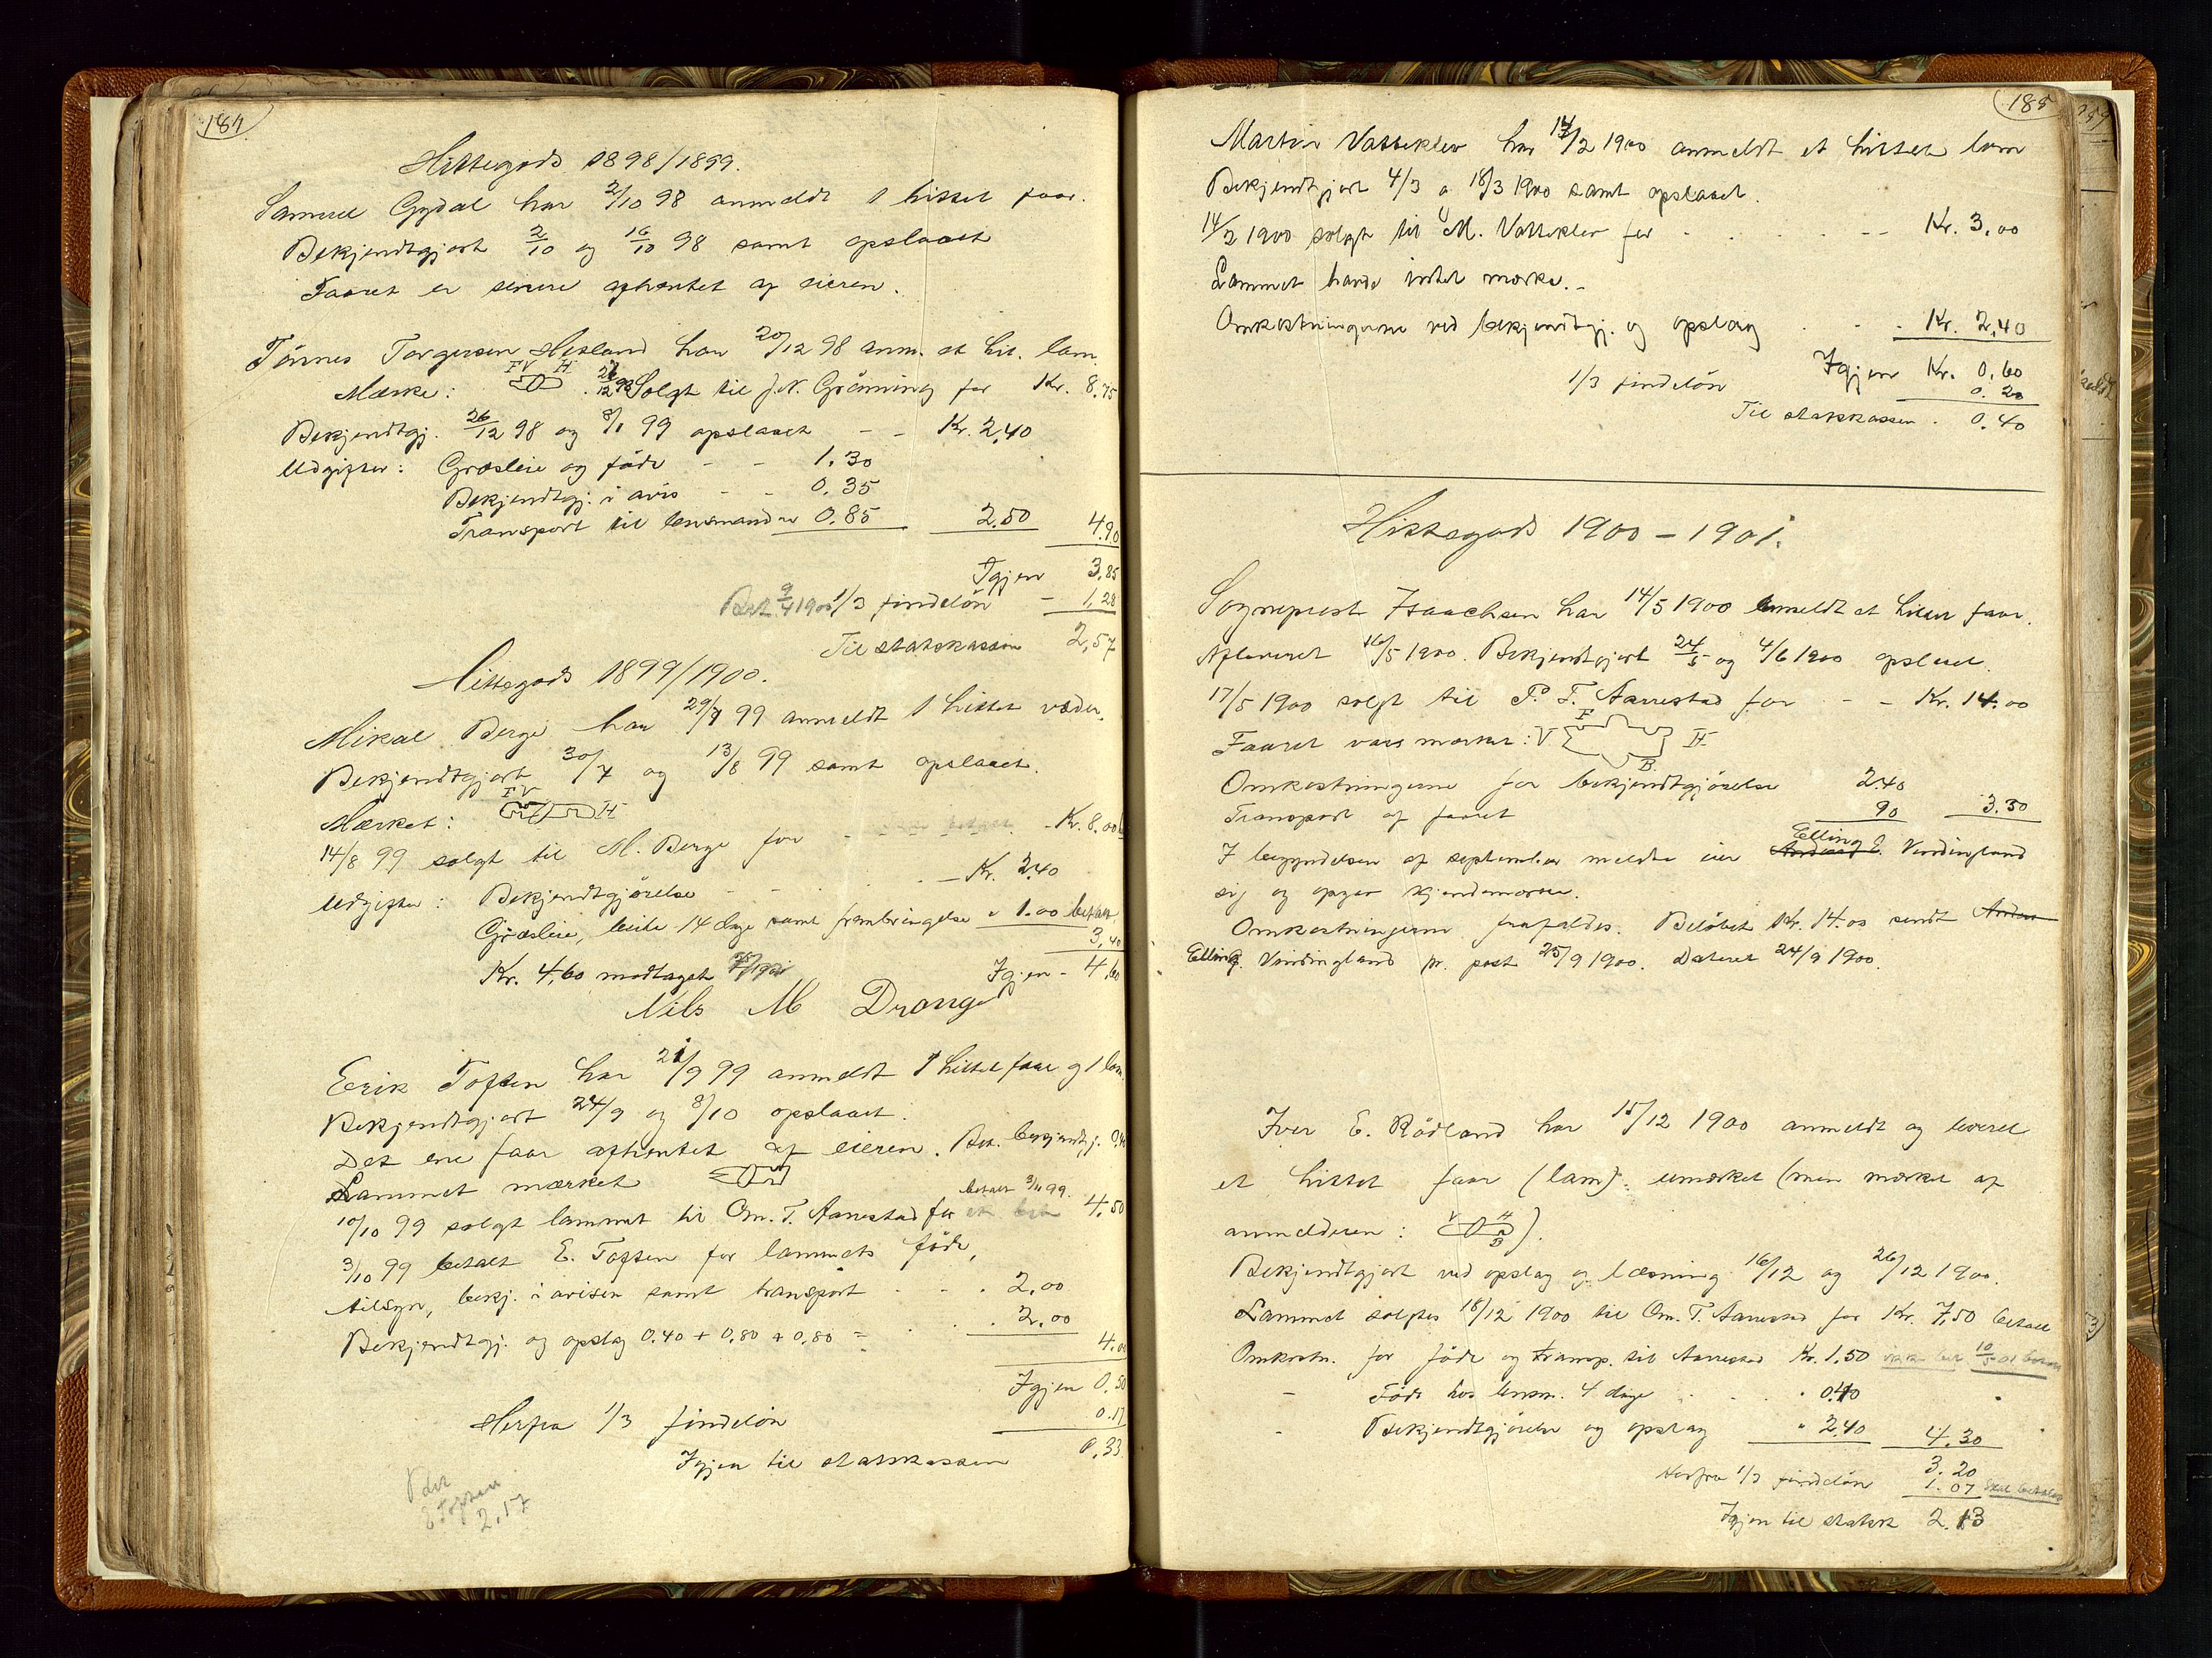 184
Hittegods 1898/1899.
Samuel Gydal har 2/10 98 anmeldt 1 hittet faar.
Bekjendtgjort 2/10 og 16/10 98 samt opslaaet
Faaret er senere afhentet af eieren.
Tönnes Torgersen Hetland har 20/12 98 anm. et hit. lam.
Mærke: FV H. Solgt til J. N. Gröning for Kr. 8,75
Bekjendtgj. 26/12 98 og 8/1 99 opslaaet - - Kr. 2,40
Udgifter: Græsleie og föde - - 1.30
Bekjendtgj. i avis - - 0.35
Transport til lensmanden 0.85 2,50 4,90
Igjen 3,85
Bet. 9/4 1900 1/3 findelön - 1,28
Til statskassen 2,57
Hittegods 1899/1900.
Mikal Berge har 29/7 99 anmeldt 1 hittet væder.
Bekjendtgjort 30/7 og 13/8 99 samt opslaaet.
Mærket: FV H
14/8 99 solgt til M. Berge for - Kr. 8,00
Udgifter: Bekjendtgjörelse - - - Kr. 2,40
Græsleie, beite 14 dage samt frembringelse " 1.00 betalt
3,40
Kr. 4,60 modtaget Igjen - 4,60
Nils M Drange
Erik Toften har 21/9 99 anmeldt 1 hittet faar og 1 lam.
Bekjendtgjort 24/9 og 8/10 opslaaet.
Det ene faar afhentet af eieren. Bet. bekjendtgj.
Lammet mærket
10/10 99 solgt lammet til Om. T. Aarrestad for betalt 3/11 99. 4.50
3/10 99 betalt E. Toften for lammets föde,
tilsyn, bekj. i avisen samt transport - - . 2,00
Bekjendtgj. og opslag 0.40 + 0.80 + 0.80 = . . 2,00 4.00
Igjen 0.50
Herfra 1/3 findelön 0.17
Igjen til statskassen 0.33
E Toften
2.17
185
Martin Vatteklev har 14/2 1900 anmeldt et hittet lam
Bekjendtgjort 4/3 o 18/3 1900 samt opslaaet.
14/2 1900 solgt til M. Vatteklev for - - - Kr. 3,00
Lammet havde intet mærke. -
Omkostningerne ved bekjendtgj. og opslag . - . Kr. 2,40
Igjen Kr. 0.60
1/3 findelön 0.20
Til statskassen . 0.40
Hittegods 1900 - 1901.
Sogneprest Isaachsen har 14/5 1900 anmeldt et hittet faar.
Afleveret 16/5 1900. Bekjendtgjort 24/5 og 4/6 1900 opslaaet.
17/5 1900 solgt til P. T. Aarrestad for - - Kr. 14.00
Faaret vars mærket: V F B H
Omkostningerne for bekjendtgjörelse 2.40
Transport af faaret 90 3.30
I begyndelsen af september meldte eier Elling E. Vindingland
sig og opgav kjendemærke.
Omkostningerne frafaldes. Belöbet Kr. 14.00 sendt
Elling Vindingland pr. post 25/9 1900. Dateret 24/9 1900.
Iver E. Rödland har 15/12 1900 anmeldt og leveret
et hittet faar (lam), umærket (men mærket af
anmelderen: V H B).
Bekjendtgjort ved opslag og læsning 16/12 og 26/12 1900.
Lammet solgtes 18/12 1900 til Om. T. Aarrestad for Kr. 7,50 betalt
Omkostn. for föde og transp. til Aarrestad Kr. 1.50
- Föde hos lensm. 4 dage . . . 0.40
- Bekjendtgjörelse og opslag " 2.40 4.30
3.20
Herfra 1/3 findelön 1.07 skal betales
Igjen til statsk 2.13